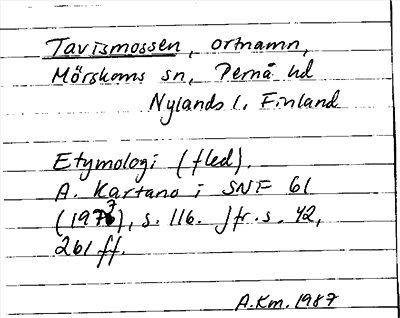 Tavismossen, ortnamn,
Mörskoms sn, Pernå hd
Nylands l. Finland
Etymologi (fled).
A. Kartano i SNF 61
(1977), s. 116. Jfr. s. 42,
261 ff.
A.Km. 1987